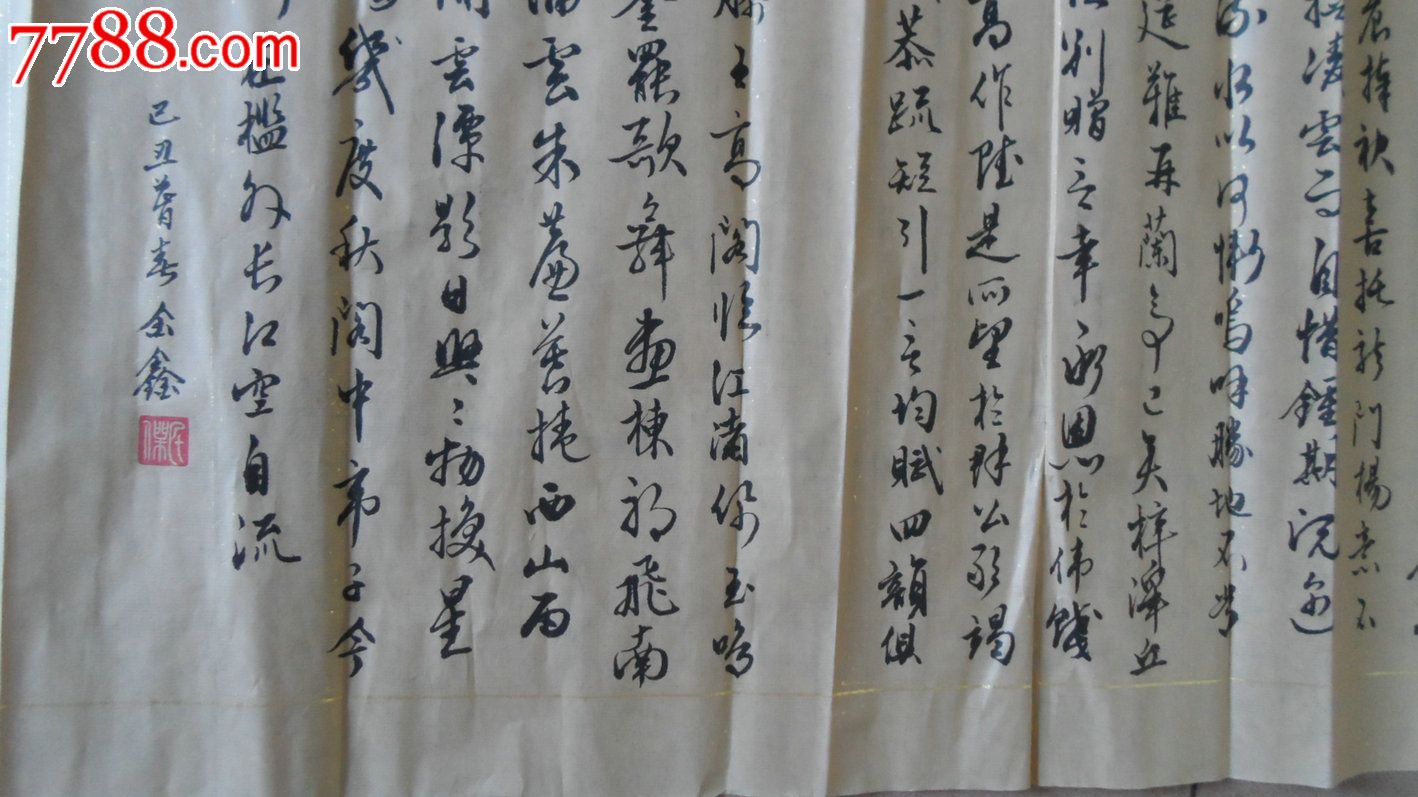 7788.com
中国收藏热线
晨捧袂喜托龍門楊意不
撫凌雲而自惜鍾期既遇
流水以何慚嗚呼勝地不常
筵難再蘭亭已矣梓澤丘
別贈言幸承恩於偉餞
高作賦是所望於群公敢竭
恭疏短引一言均賦四韻俱
滕王高閣臨江渚佩玉鳴
鸞罷歌舞畫棟朝飛南
浦雲朱簾暮捲西山雨
閒雲潭影日悠〻物換星
幾度秋閣中帝子今
在檻外長江空自流
己丑暮春 金鑫